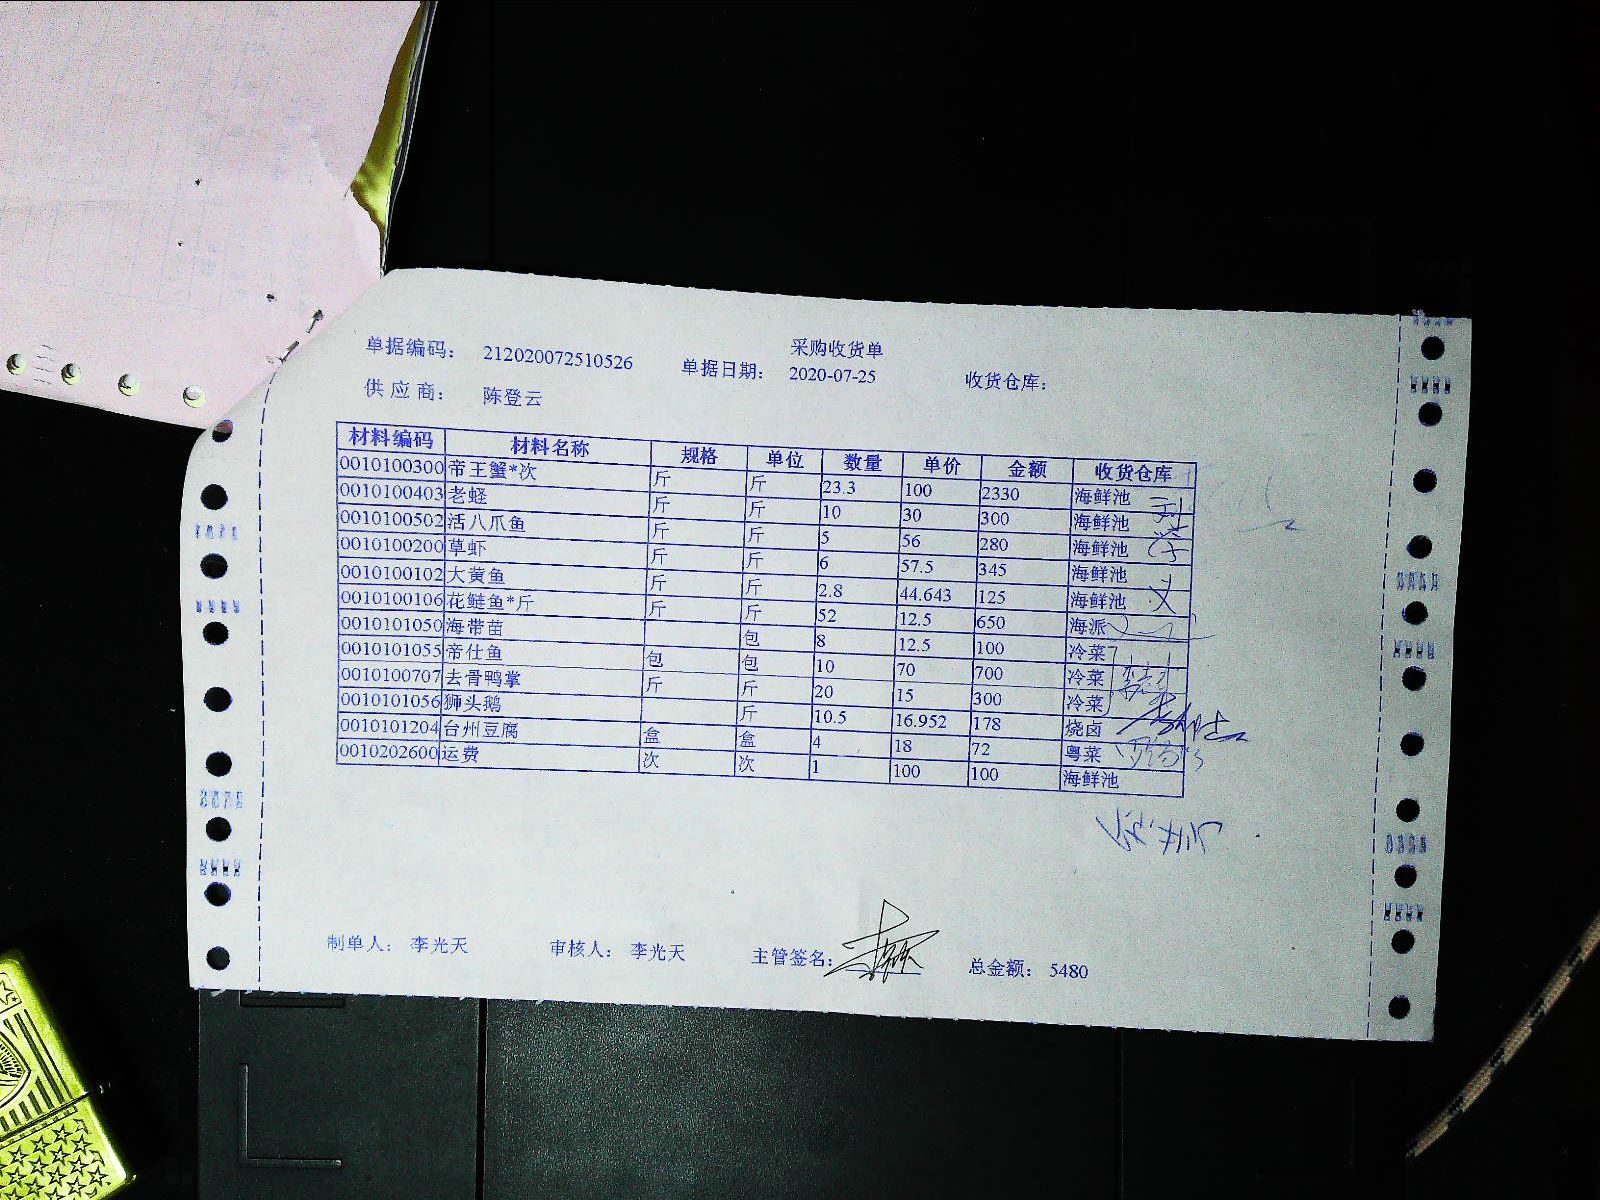 采购收货单
单据编码： 212020072510526 单据日期： 2020-07-25 收货仓库：
供 应 商： 陈登云
材料编码 材料名称 规格 单位 数量 单价 金额 收货仓库
0010100300 帝王蟹*次 斤 斤 23.3 100 2330 海鲜池
0010100403 老蛏 斤 斤 10 30 300 海鲜池
0010100502 活八爪鱼 斤 斤 5 56 280 海鲜池
0010100200 草虾 斤 斤 6 57.5 345 海鲜池
0010100102 大黄鱼 斤 斤 2.8 44.643 125 海鲜池
0010100106 花鲢鱼*斤 斤 斤 52 12.5 650 海派
0010101050 海带苗 包 8 12.5 100 冷菜
0010101055 帝仕鱼 包 包 10 70 700 冷菜
0010100707 去骨鸭掌 斤 斤 20 15 300 冷菜
0010101056 狮头鹅 斤 10.5 16.952 178 烧卤
0010101204 台州豆腐 盒 盒 4 18 72 粤菜
0010202600 运费 次 次 1 100 100 海鲜池
制单人： 李光天 审核人： 李光天 主管签名： 总金额： 5480